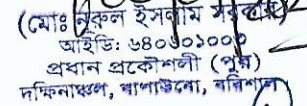 (মোঃ নূরুল ইসলাম সরকার)
আইডি: ৬৪০৬০১০০০
প্রধান প্রকৌশলী (পুর)
দক্ষিনাঞ্চল, বাপাউবো, বরিশাল